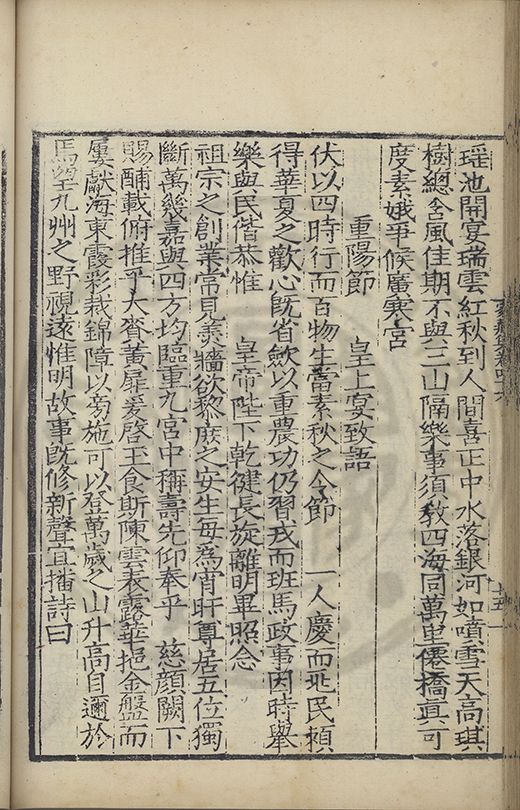 瑶池開宴瑞雲紅秋到人間喜正中水落銀河如噴雪天高琪
樹總含風佳期不與三山隔樂事須教四海同萬里僊橋真可
度素娥爭候廣寒宮
重陽節　皇上宴致語
伏以四時行而百物生當素秋之令節　一人慶而兆民賴
得華夏之歡心旣省歛以重農功仍習戎而班馬政事因時舉
樂與民偕恭惟　皇帝陛下乾健長旋離明畢照念
祖宗之創業常見羙牆欲黎庶之安生每爲宵旰尊居五位獨
斷萬幾嘉與四方均臨重九宮中稱壽先仰奉乎　慈顔闕下
賜酺載俯推乎大賚黄扉爰啓玉食斯陳雲表露華挹金盤而
屢獻海東霞彩裁錦障以旁施可以登萬歲之山升高自邇於
焉望九州之野視遠惟明故事旣修新聲宜播詩曰